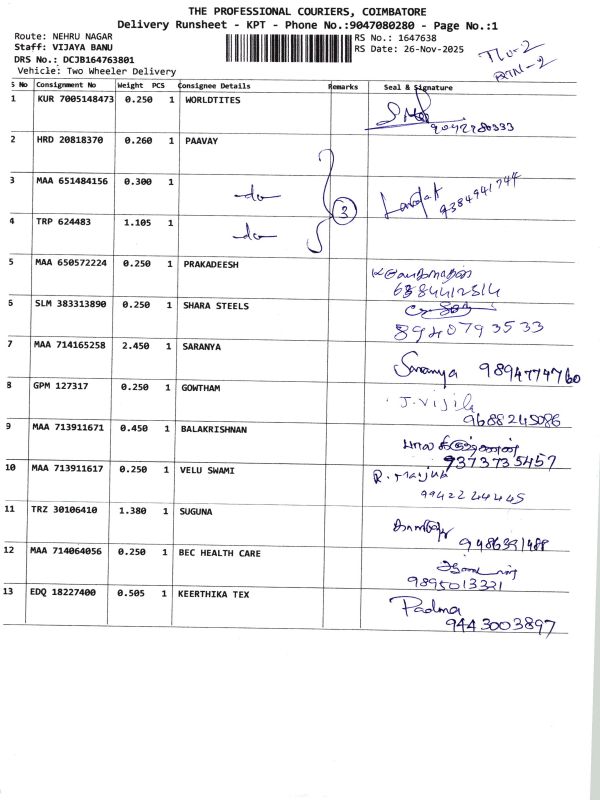 THE PROFESSIONAL COURIERS, COIMBATORE
Delivery Runsheet - KPT - Phone No.:9047080280 - Page No.:1
Route: NEHRU NAGAR RS No.: 1647638
Staff: VIJAYA BANU RS Date: 26-Nov-2025
DRS No.: DCJB164763801
Vehicle: Two Wheeler Delivery
S No Consignment No Weight PCS Consignee Details Remarks Seal & Signature
1 KUR 7005148473 0.250 1 WORLDTITES
2 HRD 20818370 0.260 1 PAAVAY
3 MAA 651484156 0.300 1 -do- 3 9384941744
4 TRP 624483 1.105 1 -do-
5 MAA 650572224 0.250 1 PRAKADEESH
6 SLM 383313890 0.250 1 SHARA STEELS
8940793533
7 MAA 714165258 2.450 1 SARANYA Saranya 9894774760
8 GPM 127317 0.250 1 GOWTHAM J. Vijila
9688245086
9 MAA 713911671 0.450 1 BALAKRISHNAN
9373735457
10 MAA 713911617 0.250 1 VELU SWAMI
9942244445
11 TRZ 30106410 1.380 1 SUGUNA
9486391488
12 MAA 714064056 0.250 1 BEC HEALTH CARE
9895013321
13 EDQ 18227400 0.505 1 KEERTHIKA TEX Padma
9443003897